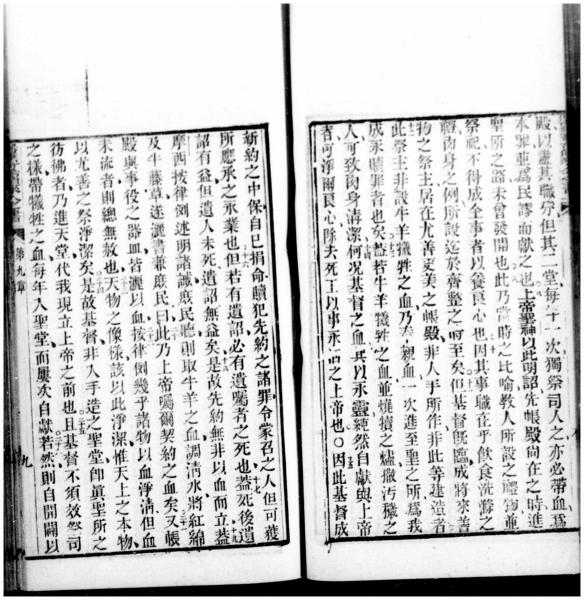 殿以盡其職分但其二堂每年一次獨祭司人之亦必帶血爲
本罪並爲民謬而獻之也上帝聖神以此明詔先帳殿尚在之時進
聖所之路未曾發開也此乃當時之比喻教人所設之禮物並
祭祀不得成全事者以養良心也因其事職在乎飲食洗滌之
輕肉身之例所設迄於齊整之時至矣但基督旣臨成將來善
物之祭主居在尤善更美之帳殿非人手所作非此等建造者
此祭主非設牛羊犧牲之血乃奉親血一次進至聖之所爲我
成永贖者也蓋若牛羊犧牲之血並燒犢之爐撒汚穢之
人可致肉身清潔何况基督之血其以永靈純然自獻與上帝
者可淨爾良心除去死工以事永活之上帝也○因此基督成
新約之中保自己捐命贖犯先約之諸罪令蒙召之人但可獲
所應承之永業也但若有遺詔必有遺囑者之死也蓋死後遺
詔有益但遺人未死遺詔無益矣是故先約無非以血而立蓋
摩西按律例述明諸誡庶民聽則取牛羊之血調清水將紅絨
及牛藤草遂灑書兼庶民曰此乃上帝囑爾契約之血矣又帳
殿與事役之器皿皆灑以血按律例幾乎諸物以血淨清但血
未流者則總無赦也天物之像樣該以此淨潔惟天上之本物
以尤善之祭淨潔矣是故基督非入手造之聖堂卽眞聖所之
彷彿者乃進天堂代我現立上帝之前也且基督不須效祭司
之徠帶犧牲之血每年入聖堂而屢次自獻若然則自開闢以
第九章